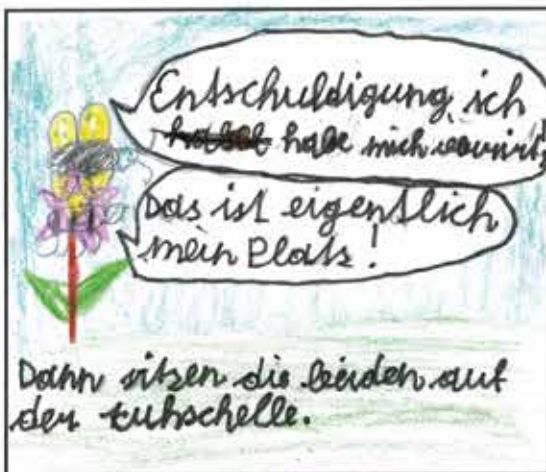 Entschuldigung, ich
habe mich verirrt,
Das ist eigentlich
mein Plats!
Dann sitzen die beiden auf
der kuhschelle.